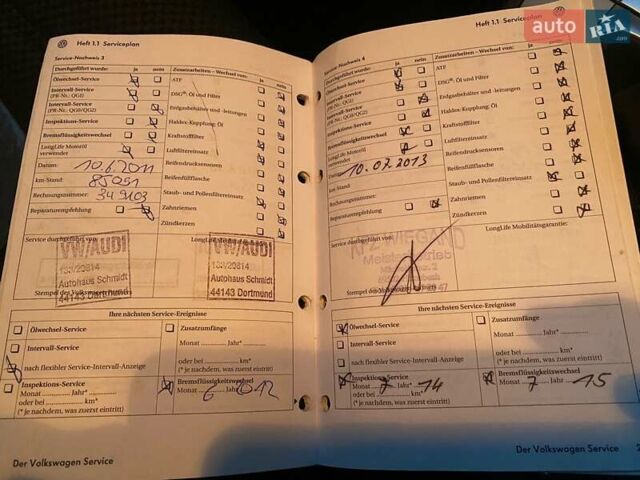 Heft 1.1 Serviceplan
Service-Nachweis 3
Durchgeführt wurde: ja nein
Zusatzarbeiten – Wechsel von: ja nein
Ölwechsel-Service
Intervall-Service
(PR-Nr.: QG1)
Intervall-Service
(PR-Nr.: QG0/QG2)
Inspektions-Service
Bremsflüssigkeitswechsel
LongLife Motoröl
verwendet
Datum: 10.6.2011
km-Stand: 85051
Rechnungsnummer: 349103
Reparaturempfehlung
ATF
DSG®: Öl und Filter
Erdgasbehälter und -leitungen
Haldex-Kupplung: Öl
Kraftstofffilter
Luftfiltereinsatz
Reifendrucksensoren
Reifenfüllflasche
Staub- und Pollenfiltereinsatz
Zahnriemen
Zündkerzen
Service durchgeführt von:
LongLife Mobilitätsgarantie:
VW/AUDI
Autohaus Schmidt
44143 Dortmund
VW/AUDI
Autohaus Schmidt
44143 Dortmund
Stempel des Volkswagen
Ihre nächsten Service-Ereignisse
Ölwechsel-Service
Intervall-Service
nach flexibler Service-Intervall-Anzeige
Zusatzumfänge
Monat ........... Jahr*
oder bei ........... km*
(* je nachdem, was zuerst eintritt)
Inspektions-Service
Monat ........... Jahr*
oder bei ........... km*
(* je nachdem, was zuerst eintritt)
Bremsflüssigkeitswechsel
Monat 6 Jahr 012
Der Volkswagen Service
Heft 1.1 Serviceplan
Service-Nachweis 4
Durchgeführt wurde: ja nein
Zusatzarbeiten – Wechsel von: ja nein
Ölwechsel-Service
Intervall-Service
(PR-Nr.: QG1)
Intervall-Service
(PR-Nr.: QG0/QG2)
Inspektions-Service
Bremsflüssigkeitswechsel
LongLife Motoröl
verwendet
Datum: 10.07.2013
km-Stand
Rechnungsnummer:
Reparaturempfehlung
ATF
DSG®: Öl und Filter
Erdgasbehälter und -leitungen
Haldex-Kupplung: Öl
Kraftstofffilter
Luftfiltereinsatz
Reifendrucksensoren
Reifenfüllflasche
Staub- und Pollenfiltereinsatz
Zahnriemen
Zündkerzen
Service durchgeführt von:
LongLife Mobilitätsgarantie:
Stempel des
Ihre nächsten Service-Ereignisse
Ölwechsel-Service
Intervall-Service
nach flexibler Service-Intervall-Anzeige
Zusatzumfänge
Monat ........... Jahr*
oder bei ........... km*
(* je nachdem, was zuerst eintritt)
Inspektions-Service
Monat 7 Jahr* 14
oder bei ........... km*
(* je nachdem, was zuerst eintritt)
Bremsflüssigkeitswechsel
Monat 7 Jahr 15
Der Volkswagen Service
auto RIA .com